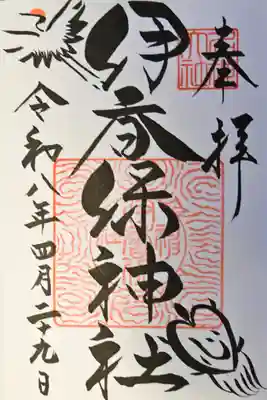 奉拝
伊香保神社
令和八年四月二十九日